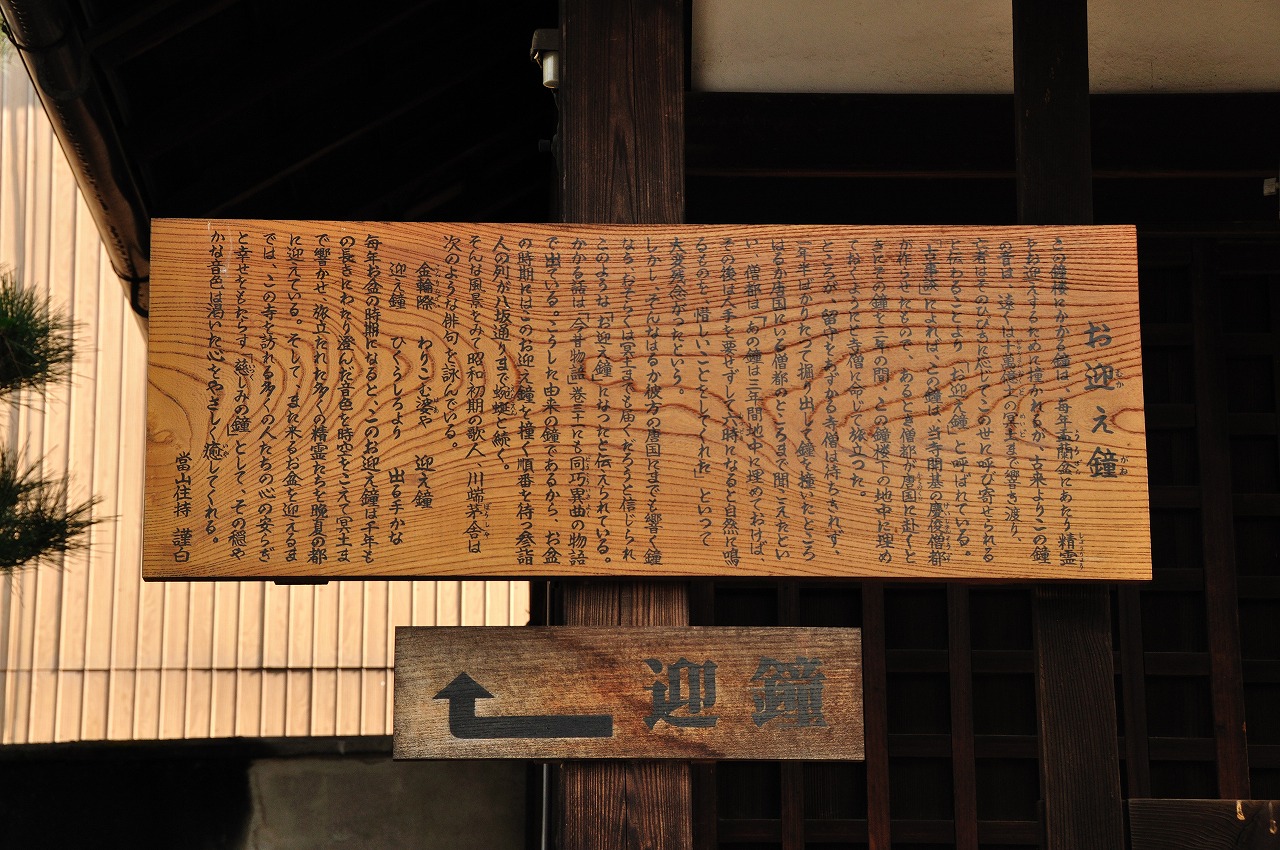 お迎え鐘
この鐘楼にかかる鐘は、毎年盂蘭盆にあたり精霊
をお迎へするために撞かれるが、古来よりこの鐘
の音は、遠く十萬億土の冥土まで響き渡り、
亡者はそのひびきに応じてこのせに呼び寄せられる
と伝わることより「お迎え鐘」と呼ばれている。
「古事談」によれば、この鐘は、当寺開基の慶俊僧都
が作らせたもので、あるとき僧都が唐国に赴くと
きにその鐘を三年の間、この鐘楼下の地中に埋め
ておくようにと寺僧に命じて旅立った。
ところが、留守をあずかる寺僧は待ちきれず、
一年半ばかりたって掘り出して鐘を撞いたところ
はるか唐国にいる僧都のところまで聞こえたとい
い、僧都は「あの鐘は三年間地中に埋めておけば、
その後は人手を要せずして六時になると自然に鳴
るものを、惜しいことをしてくれた」といって
大変残念がったという。
しかし、そんなはるか彼方の唐国にまでも響く鐘
なら、おそらくは冥土までも届くだろうと信じられ
このような「お迎え鐘」になったと伝えられている。
かかる話は、「今昔物語」巻三十にも同巧異曲の物語
で出ている。こうした由来の鐘であるから、お盆
の時期にはこのお迎え鐘を撞く順番を待つ参詣
人の列が八坂通りまで蜿蜒と続く。
そんな風景をみて昭和初期の歌人、川端茅舎は
次のような俳句を詠んでいる。
金輪際 わりこむ婆や 迎え鐘
迎え鐘 ひくうしろより 出る手かな
毎年お盆の時期になると、このお迎え鐘は千年も
の長きにわたり澄んだ音色を時空をこえて冥土ま
で響かせ、旅立たれた多くの精霊たちを晩夏の都
に迎えている。そして、また来るお盆を迎えるま
では、この寺を訪れる多くの人たちの心の安らぎ
と幸せをもたらす「慈しみの鐘」として、その穏や
かな音色は渇いた心をやさしく癒してくれる。
當山住持 謹白
迎鐘